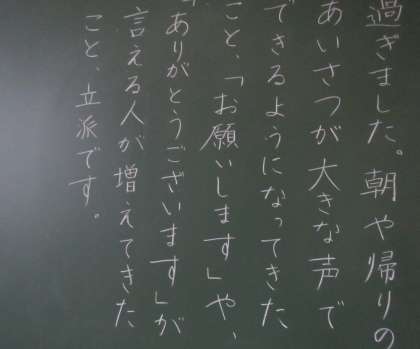 過ぎました。朝や帰りの
あいさつが大きな声で
できるようになってきた
こと、「お願いします」や、
「ありがとうございます」が
言える人が増えてきた
こと、立派です。